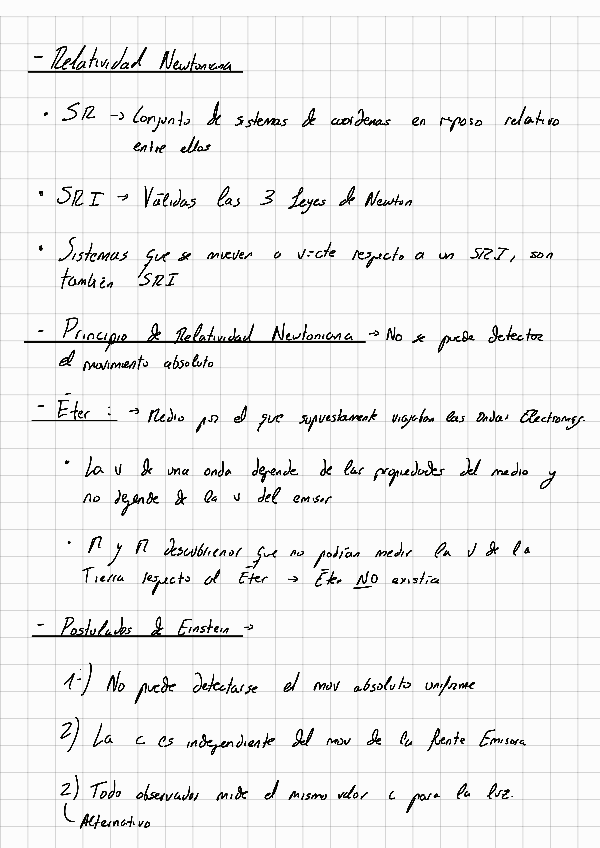 - Relatividad Newtoniana
• SR -> Conjunto de sistemas de coordenas en reposo relativo
entre ellos
• SRI -> Válidas las 3 Leyes de Newton
• Sistemas que se mueven a v=cte respecto a un SRI, son
también SRI
- Principio de Relatividad Newtoniana -> No se puede detectar
el movimiento absoluto
- Éter : -> Medio por el que supuestamente viajaban las ondas Electromg.
• La v de una onda depende de las propiedades del medio y
no depende de la v del emisor
• M y M descubrieron que no podían medir la v de la
Tierra respecto al Éter -> Éter NO existía
- Postulados de Einstein ->
1.) No puede detectarse el mov absoluto uniforme
2) La c es independiente del mov de la fuente Emisora
2) Todo observador mide el mismo valor c para la luz.
Alternativo